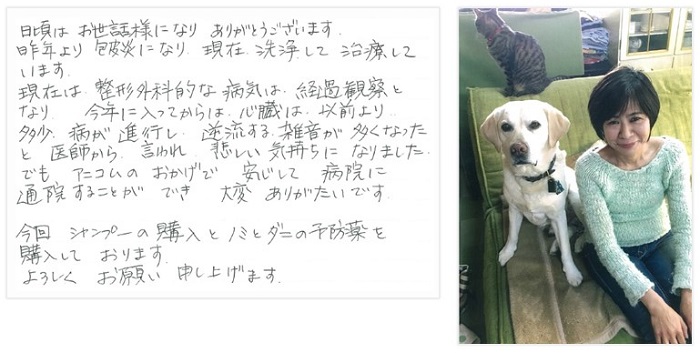 日頃は お世話様になり ありがとうございます.
昨年より 包皮炎になり 現在 洗浄して 治療して
います.
現在は 整形外科的な 病気は 経過観察と
なり. 今年に入ってからは. 心臓は 以前より
多少 病が 進行し. 逆流する 雑音が 多くなった
と 医師から 言われ 悲しい 気持ちに なりました.
でも アニコムの おかげで 安じして 病院に
通院することが でき 大変 ありがたいです.
今回 シャンプーの 購入と ノミとダニの予防薬を
購入して おります.
よろしく お願い 申し上げます.